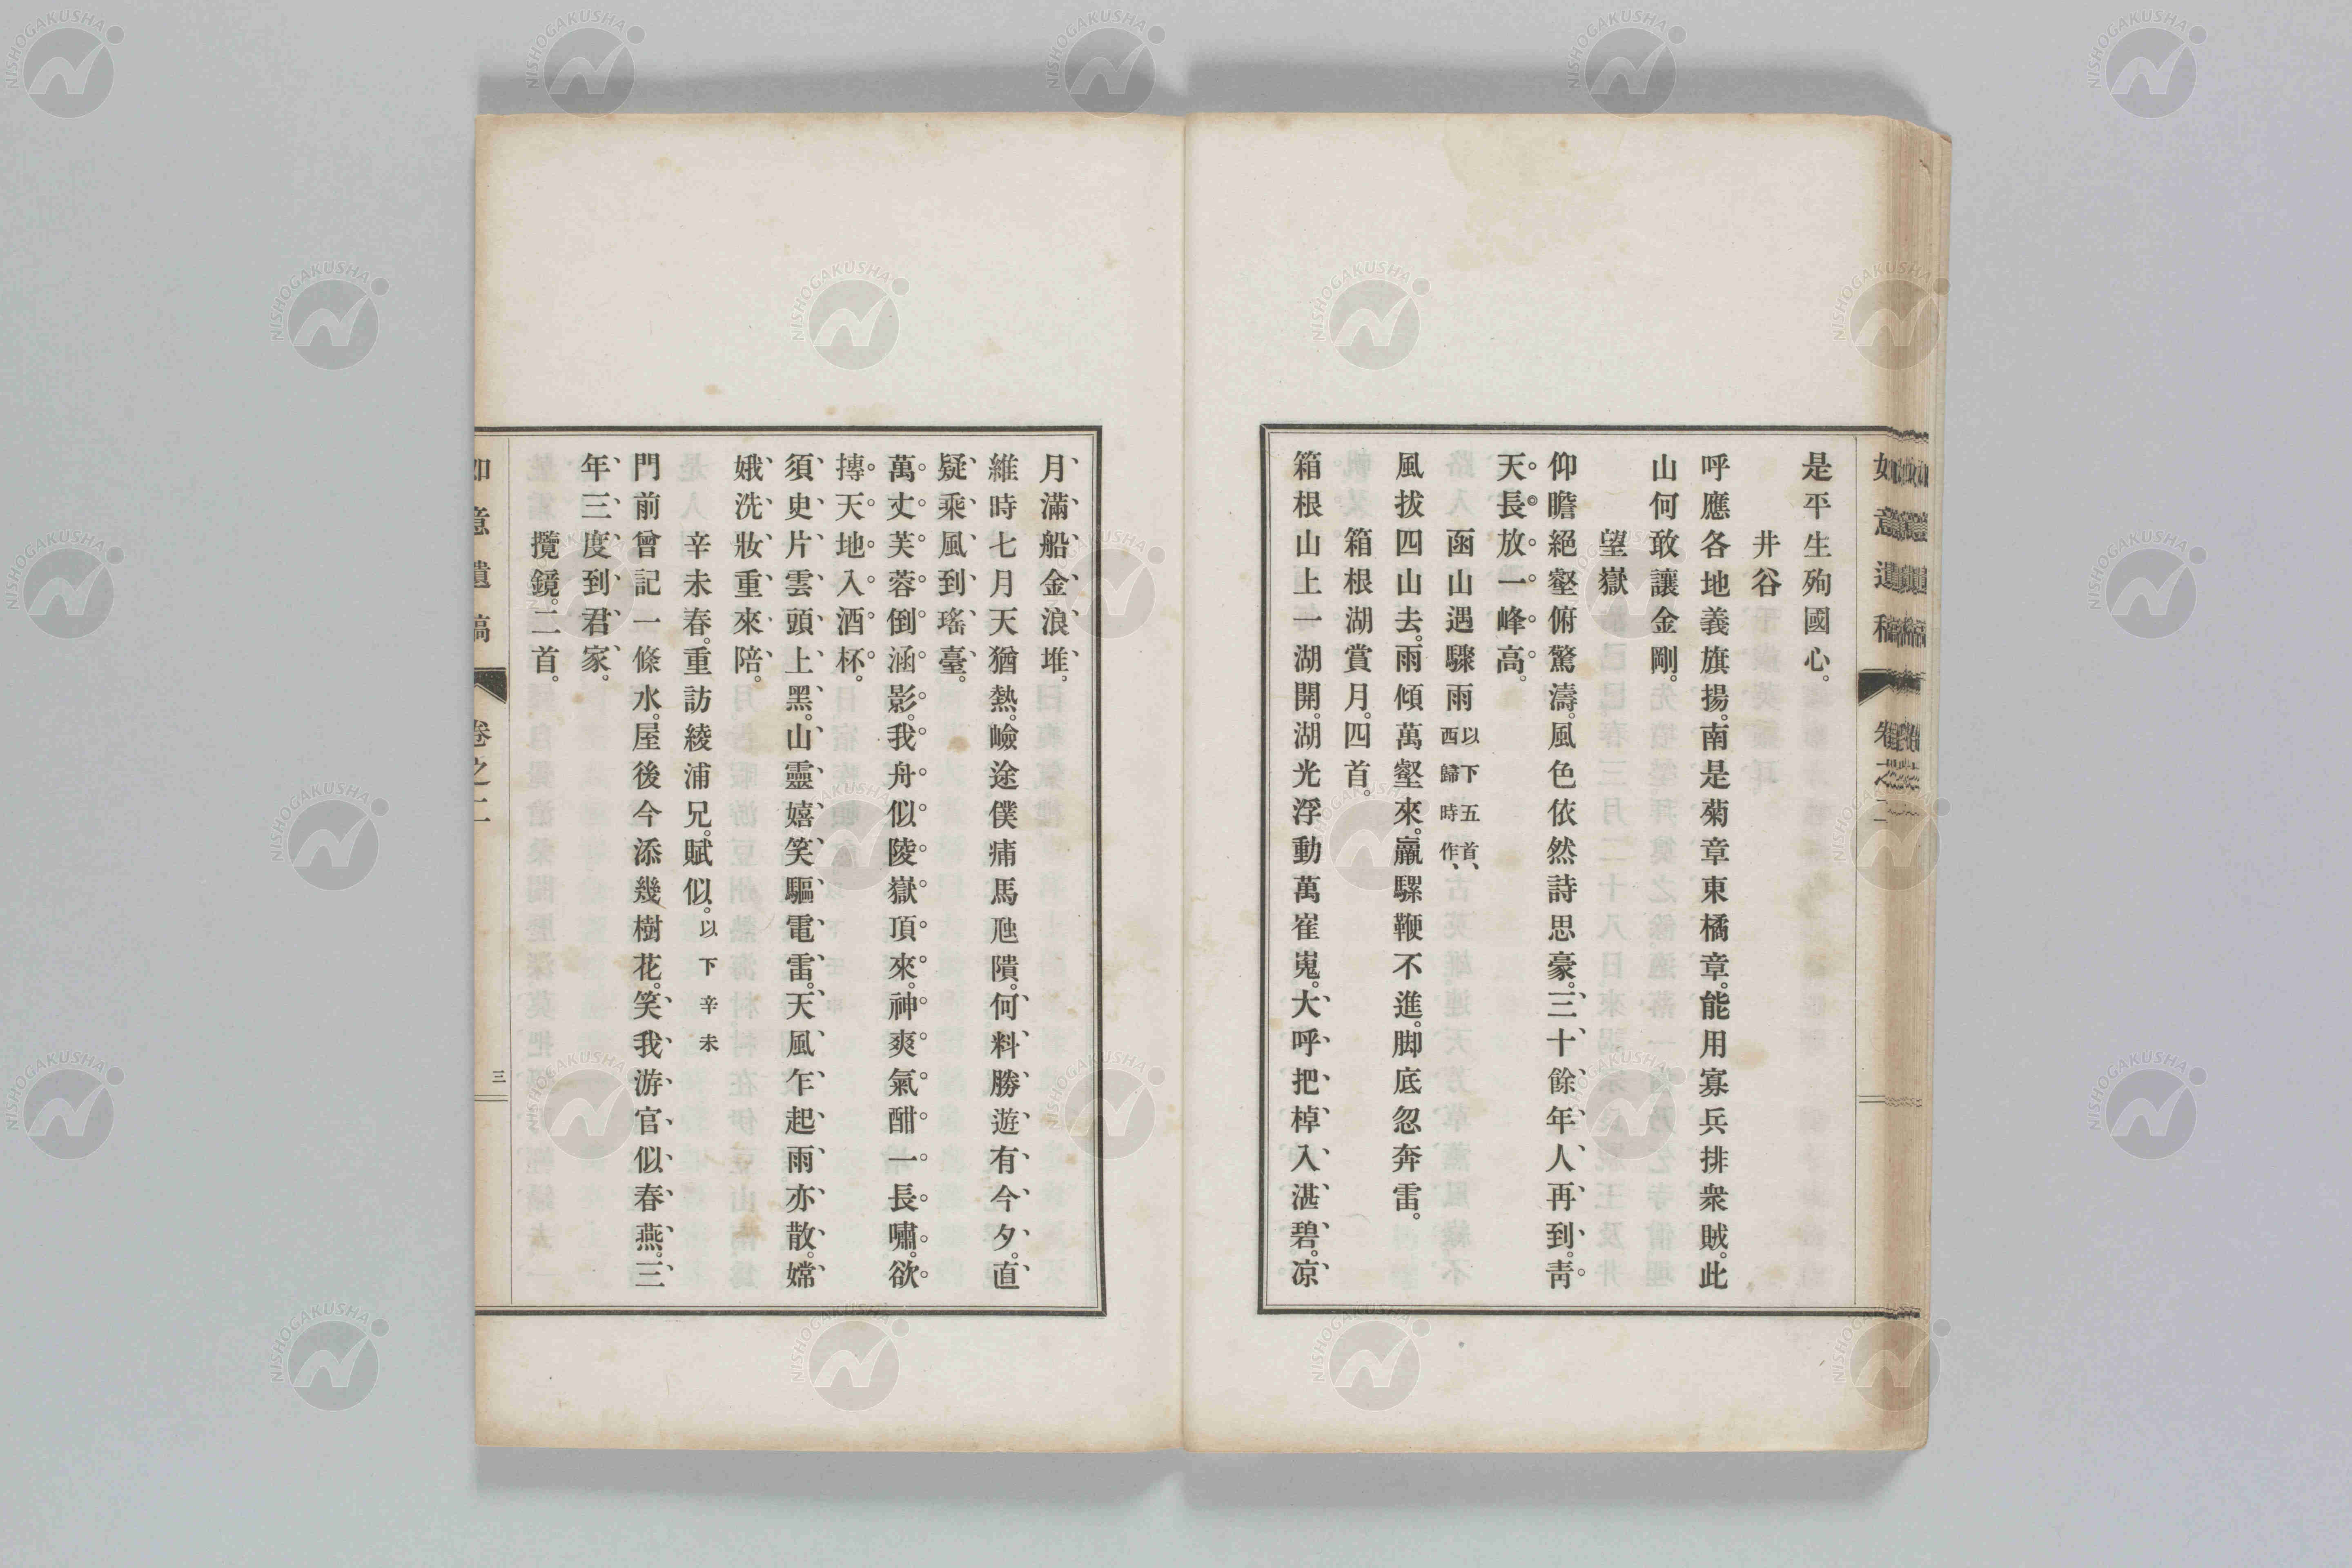 如意遺稿 卷之二
是平生殉國心。
井谷
呼應各地義旗揚。南是菊章東橘章。能用寡兵排衆賊。此
山何敢讓金剛。
望嶽
仰瞻絕壑俯驚濤。風色依然詩思豪。三十餘年人再到。靑
天長放一峰高。
函山遇驟雨 以下五首、西歸時作、
風拔四山去。雨傾萬壑來。羸騾鞭不進。脚底忽奔雷。
箱根湖賞月。四首。
箱根山上一湖開。湖光浮動萬崔嵬。大呼把棹入湛碧。凉
月滿船金浪堆。
維時七月天猶熱。嶮途僕痡馬虺隤。何料勝遊有今夕。直
疑乘風到瑤臺。
萬丈芙蓉倒涵影。我舟似陵嶽頂來。神爽氣酣一長嘯。欲
摶天地入酒杯。
須臾片雲頭上黑。山靈嬉笑驅電雷。天風乍起雨亦散。嫦
娥洗妝重來陪。
辛未春。重訪綾浦兄。賦似。以下辛未
門前曾記一條水。屋後今添幾樹花。笑我游官似春燕。三
年三度到君家。
攬鏡。二首。
如意遺稿 卷之二 三
NISHOGAKUSHA